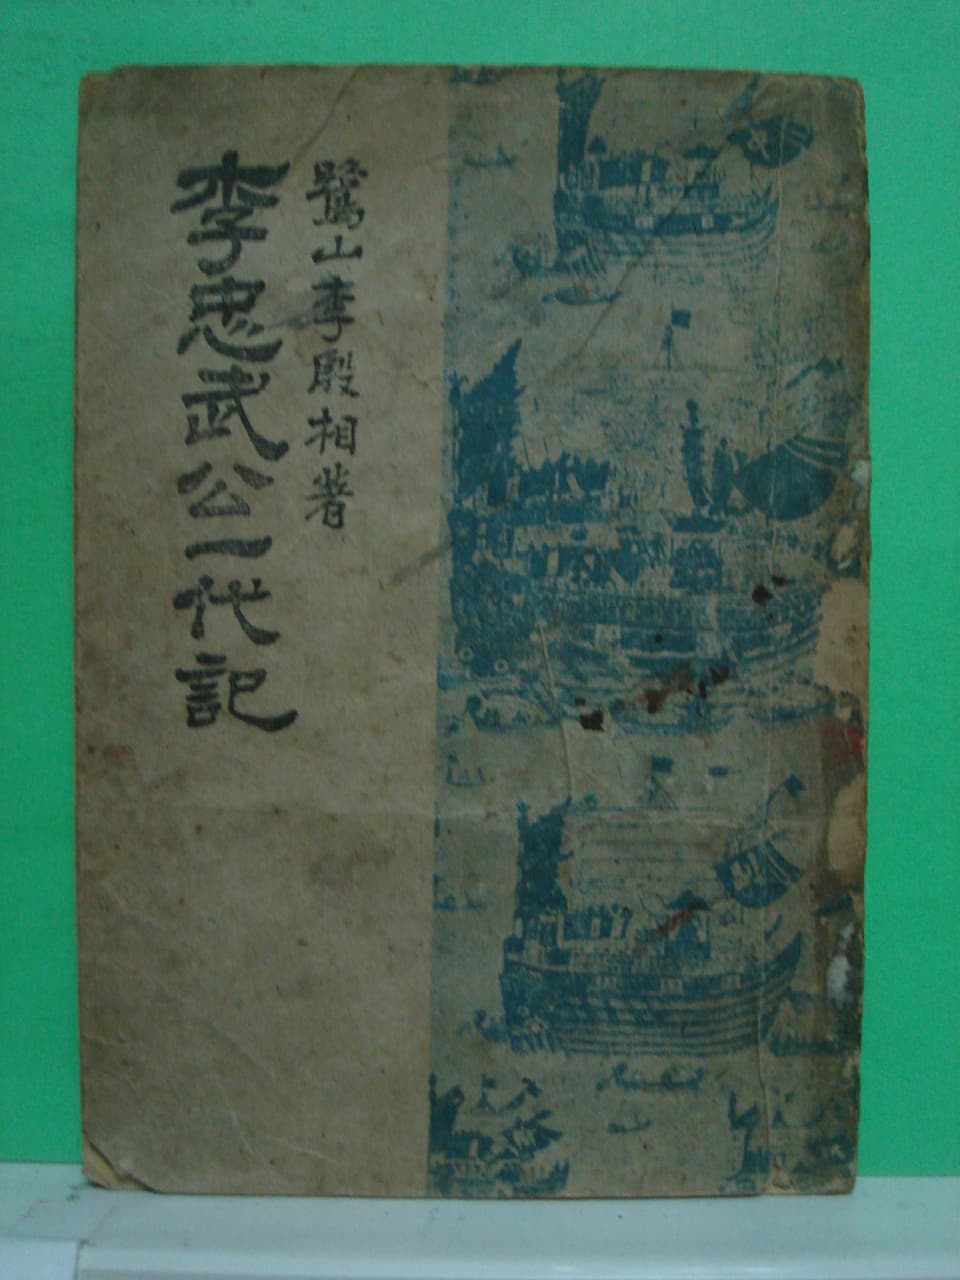 中
鷺山李殷相著
李忠武公一代記